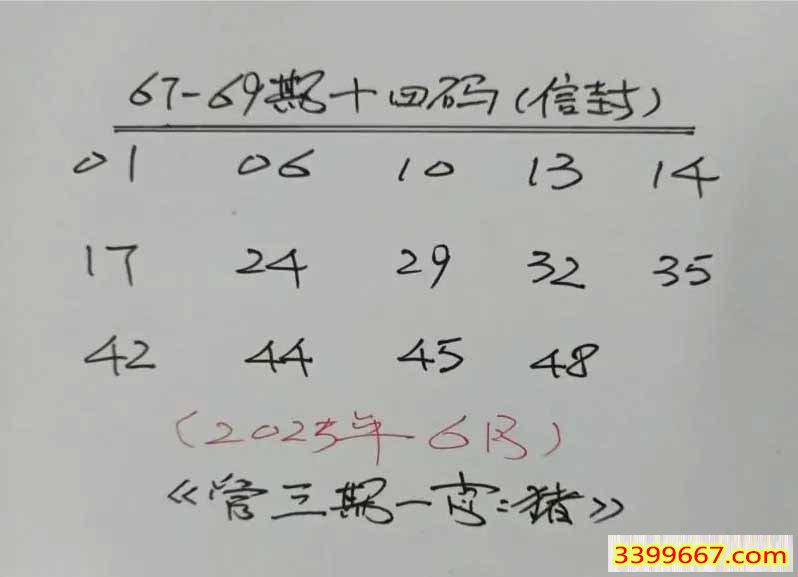 67-69期十四码(信封)
01 06 10 13 14
17 24 29 32 35
42 44 45 48
(2025年6月)
《管三期一肖:猪》
3399667.com